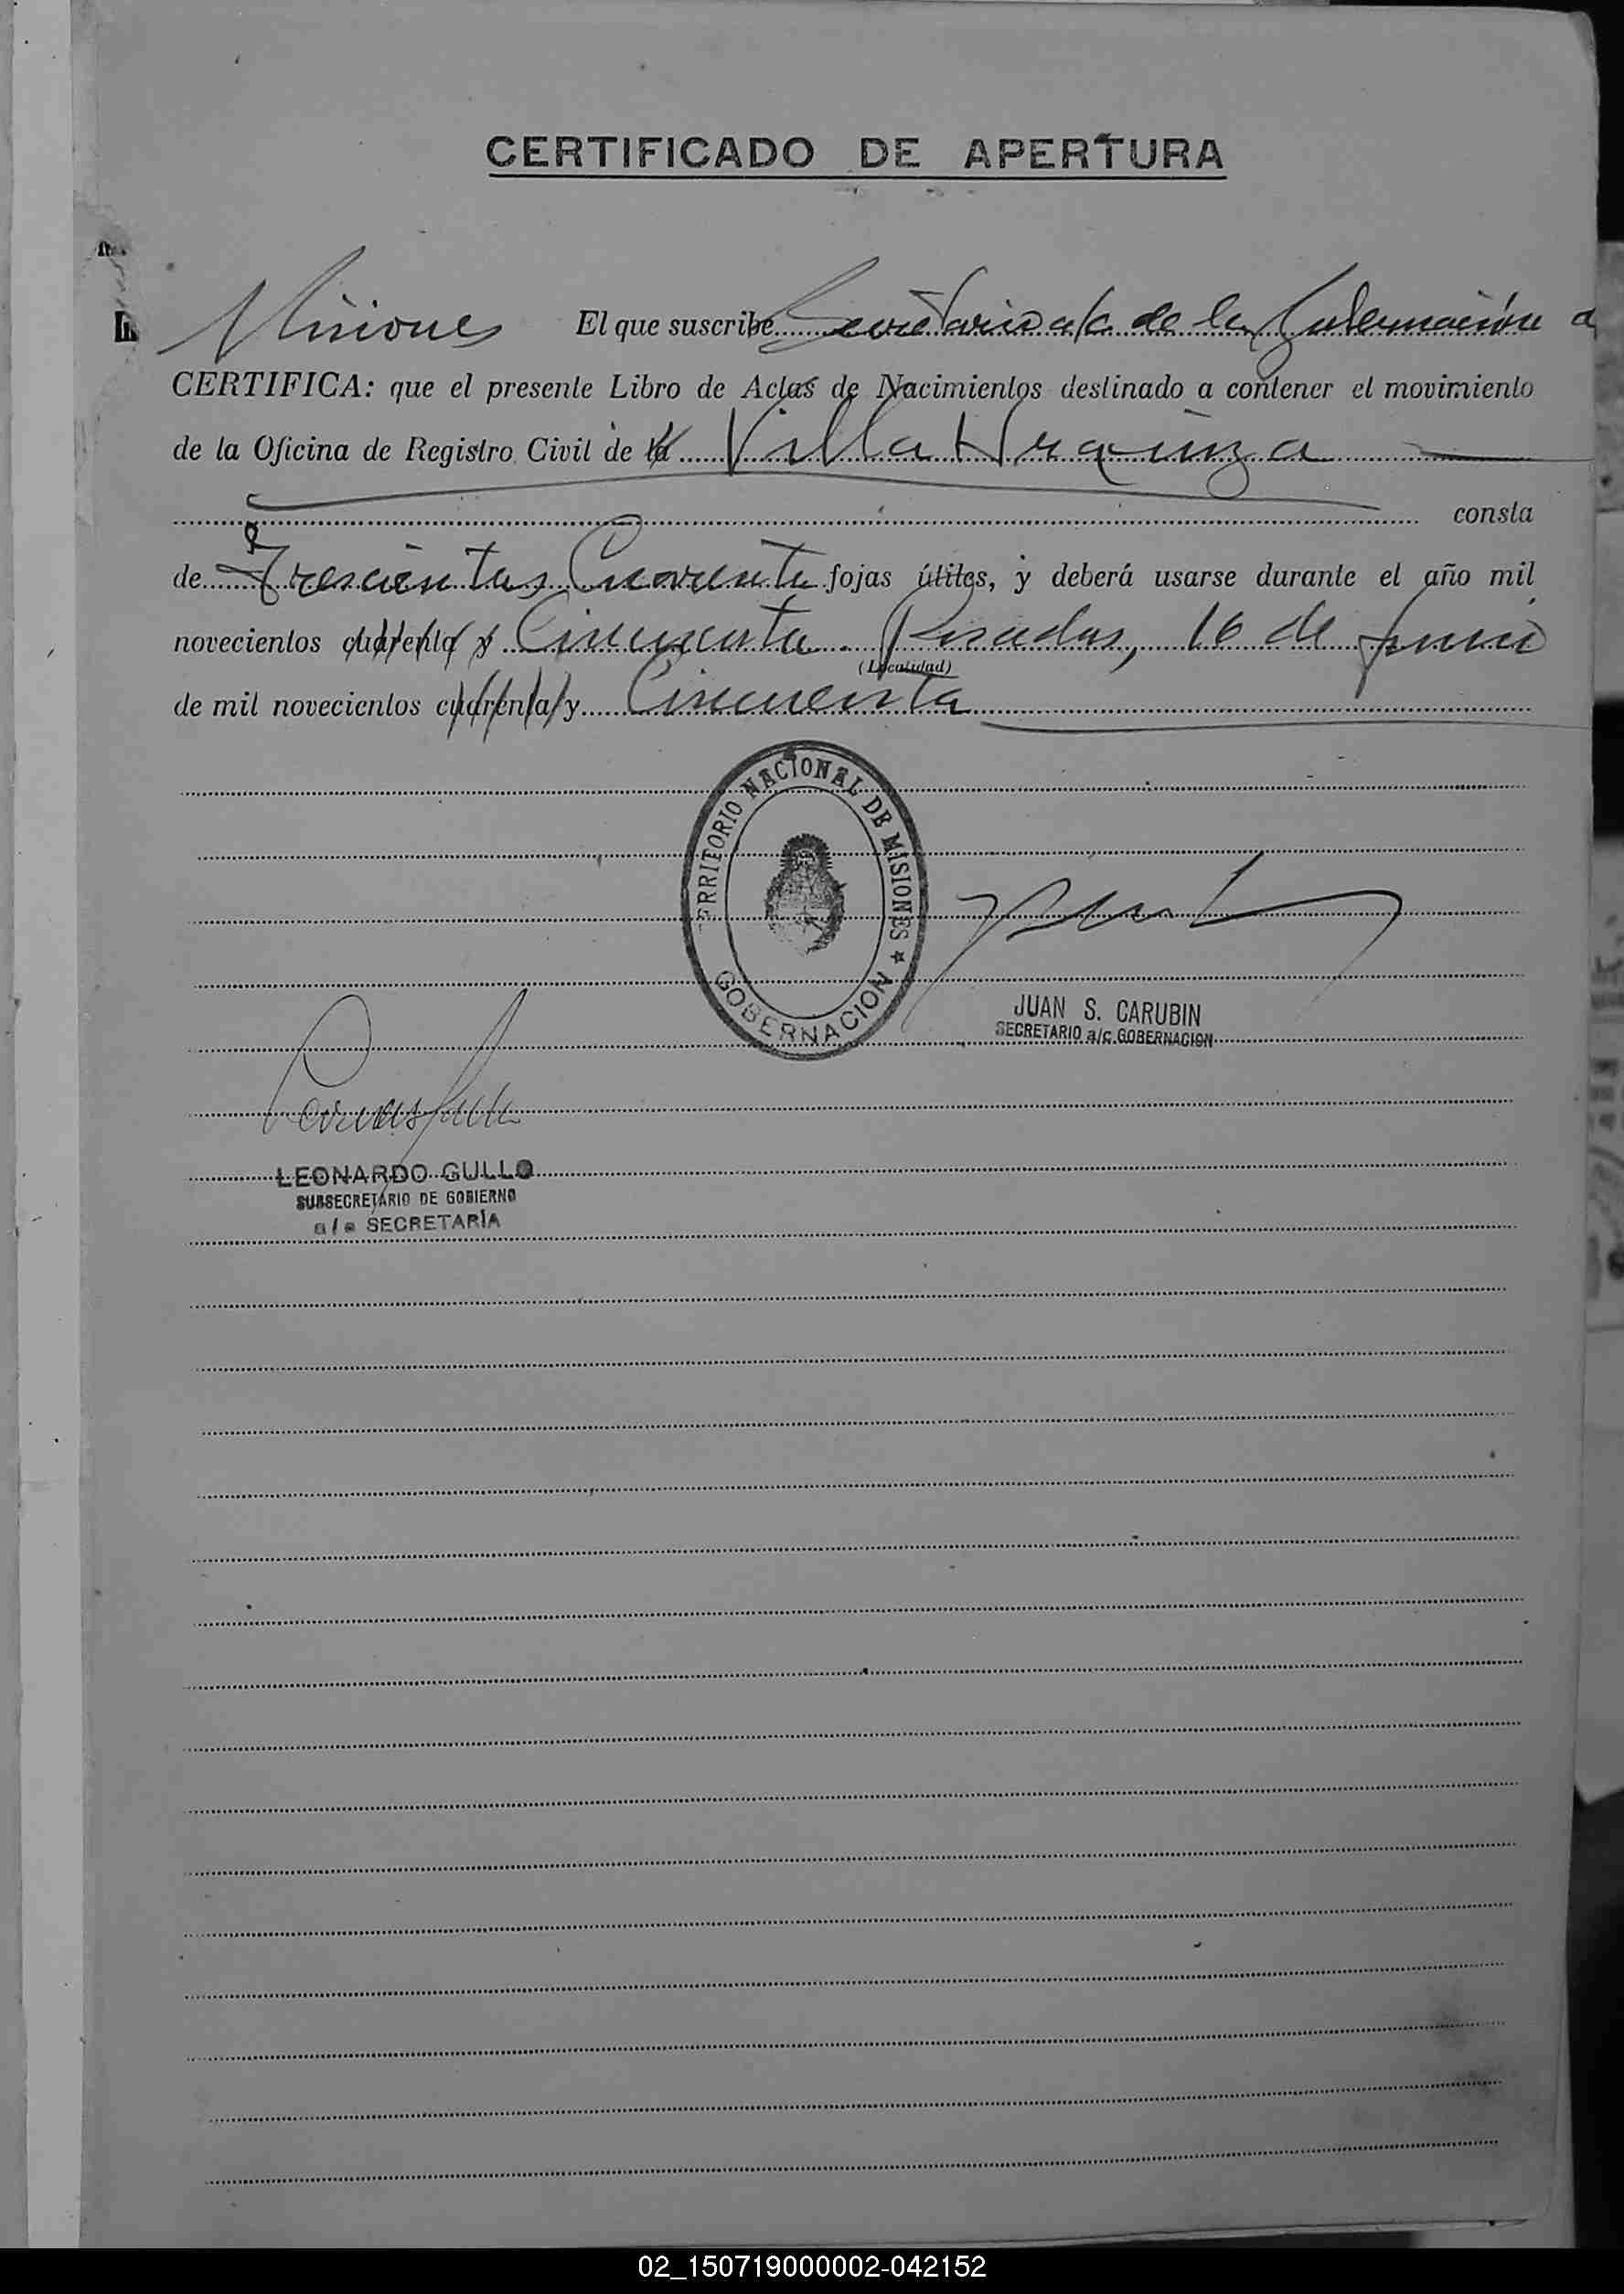 CERTIFICADO DE APERTURA
Misiones El que suscribe Secretario a/c de la Gobernación d
CERTIFICA: que el presente Libro de Actas de Nacimientos destinado a contener el movimiento
de la Oficina de Registro Civil de la Villa Urquiza
consta
de Trescientas Cuarenta fojas útiles, y deberá usarse durante el año mil
novecientos cuarenta y Cincuenta. Posadas, 16 de Junio
(Localidad)
de mil novecientos cuarenta y Cincuenta
TERRITORIO NACIONAL DE MISIONES ★
GOBERNACION
JUAN S. CARUBIN
SECRETARIO a/c. GOBERNACION
LEONARDO GULLO
SUBSECRETARIO DE GOBIERNO
a/c SECRETARÍA
02_150719000002-042152